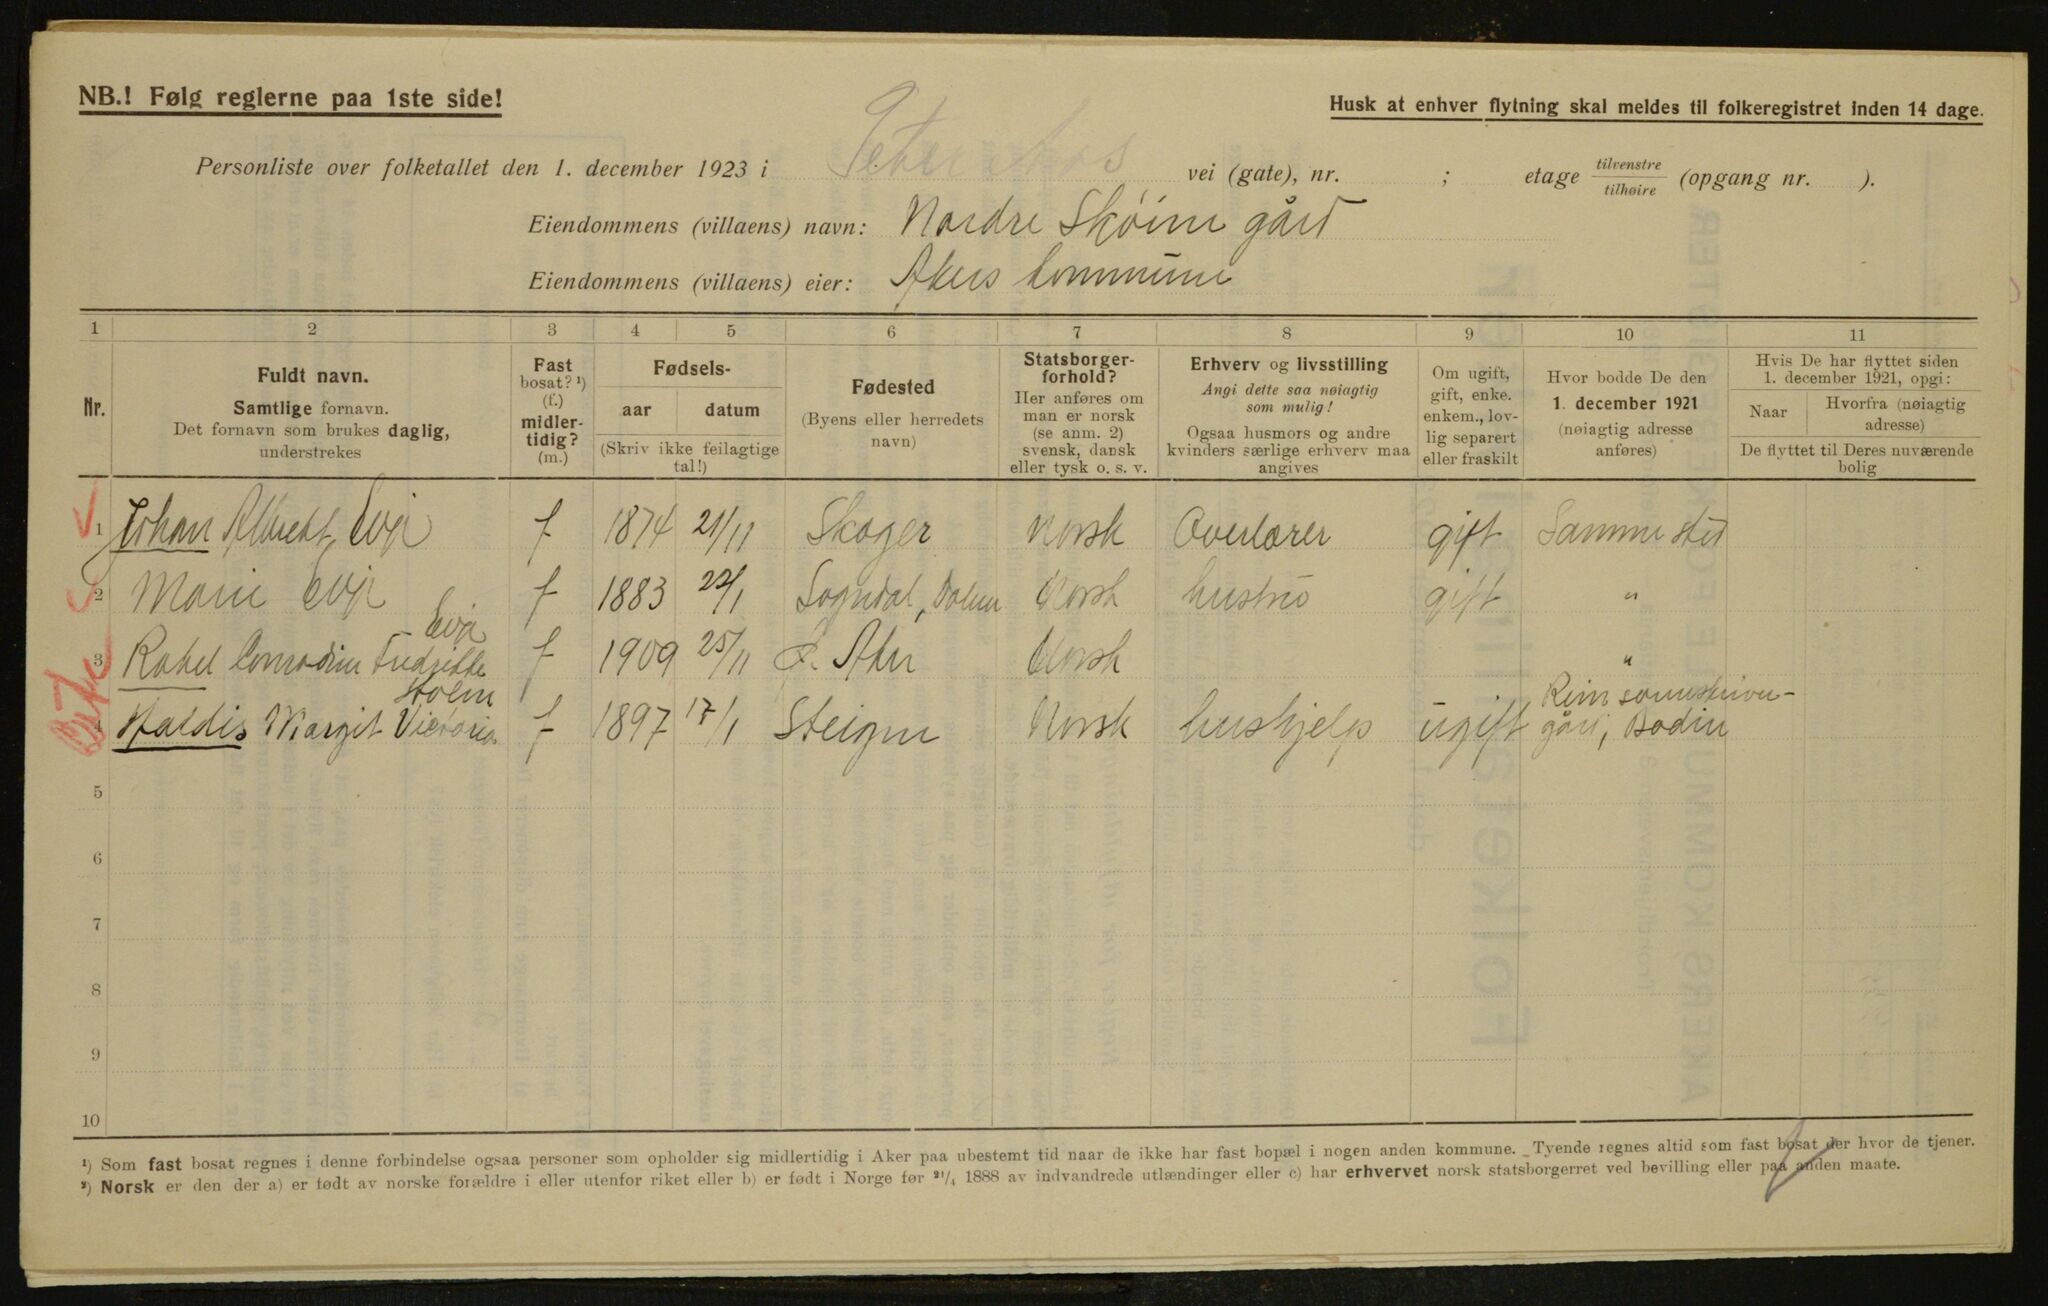 NB.! Følg reglerne paa 1ste side!
Husk at enhver flytning skal meldes til folkeregistret inden 14 dage.
Personliste over folketallet den 1. december 1923 i vei (gate), nr. ; etage tilvenstre/tilhøire (opgang nr. ).
Eiendommens (villaens) navn: Nordre Skøien gård
Eiendommens (villaens) eier: Akers kommune
1 2 3 4 5 6 7 8 9 10 11
Nr.
Fuldt navn.
Samtlige fornavn.
Det fornavn som brukes daglig,
understrekes
Fast
bosat? ¹)
(f.)
midler-
tidig?
(m.)
Fødsels-
aar datum
(Skriv ikke feilagtige
tal!)
Fødested
(Byens eller herredets
navn)
Statsborger-
forhold?
Her anføres om
man er norsk
(se anm. 2)
svensk, dansk
eller tysk o. s. v.
Erhverv og livsstilling
Angi dette saa nøiagtig
som mulig!
Ogsaa husmors og andre
kvinders særlige erhverv maa
angives
Om ugift,
gift, enke.
enkem., lov-
lig separert
eller fraskilt
Hvor bodde De den
1. december 1921
(nøiagtig adresse
anføres)
Hvis De har flyttet siden
1. december 1921, opgi:
Naar
Hvorfra (nøiagtig
adresse)
De flyttet til Deres nuværende
bolig
1 Johan Albrecht Evje f 1874 21/11 Skoger Norsk Overlærer gift Samme sted
2 Marie Evje f 1883 22/1 Sogndal, Dalene Norsk hustru gift "
Evje
3 Rakel Conradine Fredrikke f 1909 25/11 Aker Norsk "
Holm Reim sorenskriver-
4 Haldis Margit Victoria f 1897 17/1 Steigen Norsk hushjelp ugift gård, Bodin
5
6
7
8
9
10
¹) Som fast bosat regnes i denne forbindelse ogsaa personer som opholder sig midlertidig i Aker paa ubestemt tid naar de ikke har fast bopæl i nogen anden kommune. Tyende regnes altid som fast bosat der hvor de tjener.
²) Norsk er den der a) er født av norske forældre i eller utenfor riket eller b) er født i Norge før 21/4 1888 av indvandrede utlændinger eller c) har erhvervet norsk statsborgerret ved bevilling eller paa anden maate.